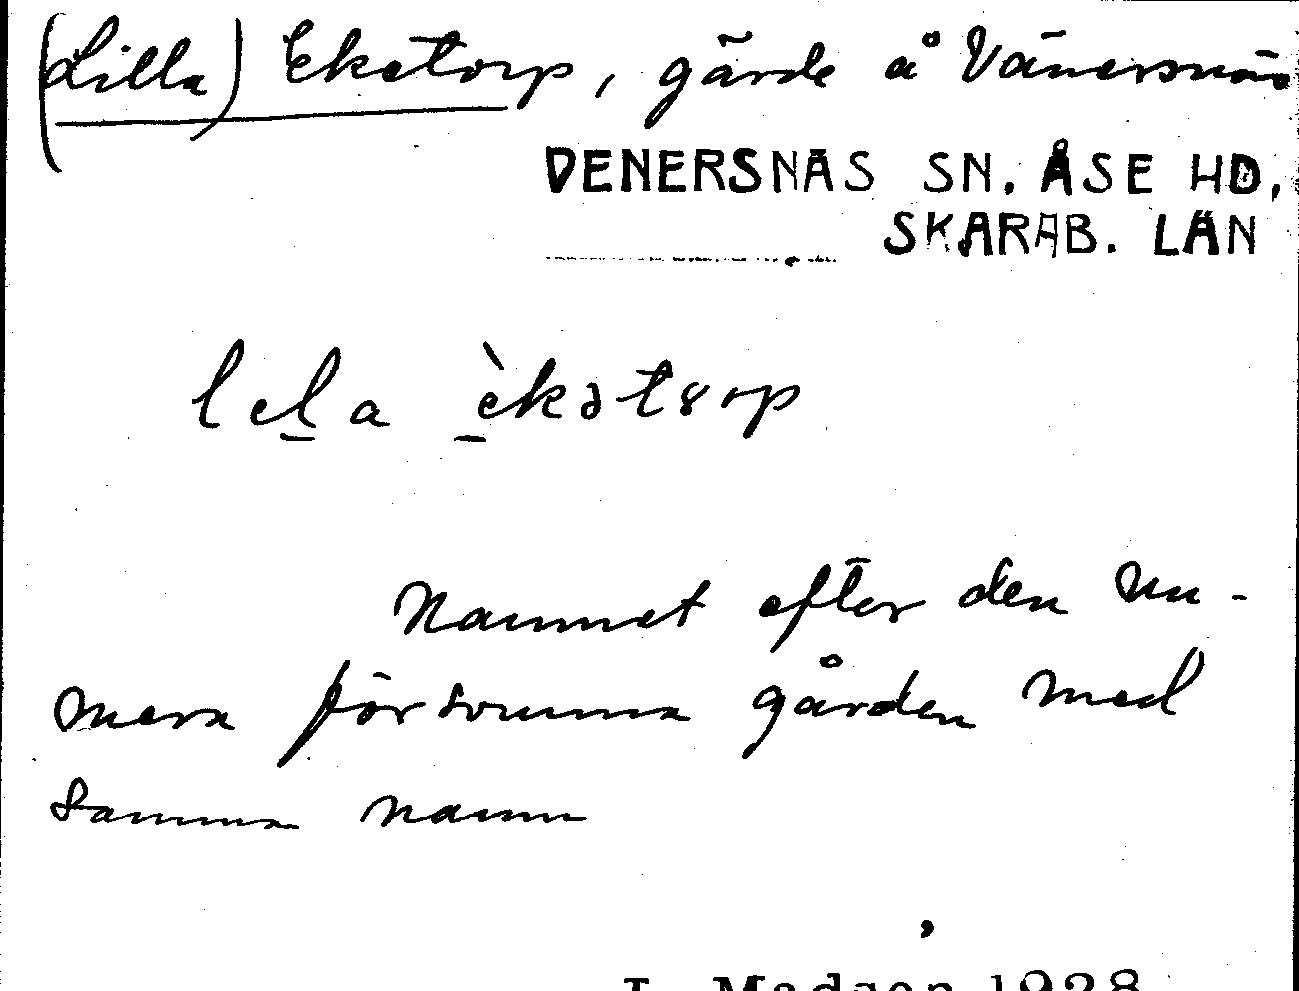 (Lilla) Ekatorp, gärde å Vänersnäs
VENERSNÄS SN. ÅSE HD,
SKARAB. LÄN
lela èkatorp
Namnet efter den nu-
mera försvunna gården med
samma namn
L. Madsen 1928